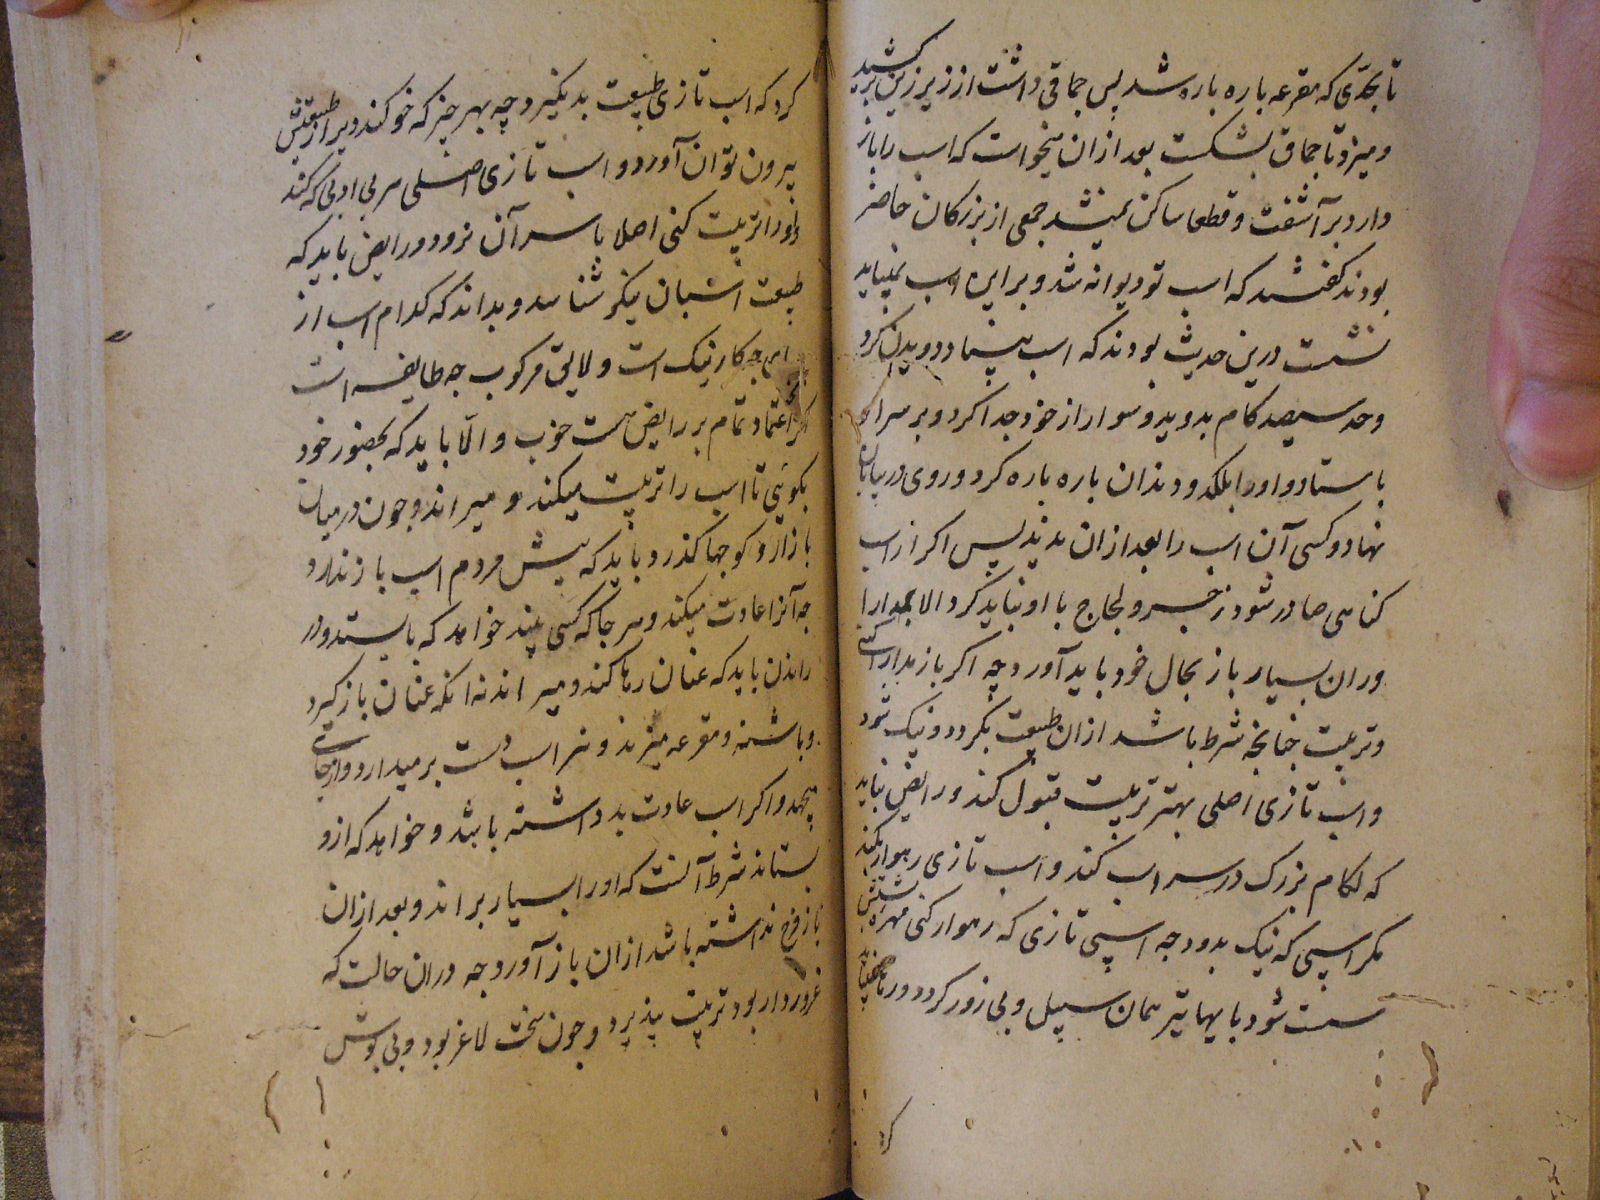 تا بحدی که مقرعه باره باره شد پس جماقی داشت از زیر زین بر کشید
و میزد تا جماق بشکست بعد ازان میخواست که اسب را باز
دارد برآشفت و قطعا ساکن نمیشد جمعی از بزرکان حاضر
بودند کفتند که اسب تو دیوانه شد و بر این اسب نمیباید
نشست درین حدیث بودند که اسب بیستاد و دویدن کرد
و حد سیصد کام بدوید و سوار از خود جدا کرد و بر سر او
باستاد و او را بلکد و دندان باره باره کرد و روی در بیابان
نهاد و کسی آن اسب را بعد ازان ندید پس اکر از اسب
کناهی صادر شود زجر و لجاج با او نباید کرد الا بمدارا
وران بسیار باز بحال خود باید آورد چه اکر باز مدارا کنی
و تربیت جنانجه شرط باشد ازان طبیعت بکردد و نیک شود
و اسب تازی اصلی بهتر تربیت قبول کند و رایض نباید
که لکام بزرک در سر اسب کند و اسب تازی رهوار نکند
مکر اسپی که نیک بدود جه اسپی تازی که رهوار کنی مهره بشتش
سست شود با بیهاتیر همان سپل و بی زور کردد و رنا
کرد
کرد که اسب تازی طبیعت بد نکیرد چه بهر جیز که خو کند دیر از طبیعتش
بیرون توان آورد و اسب تازی اصلی هر بی ادبی که کند
و او را تربیت کنی اصلا با سر آن نرود و رایض باید که
طبیعت اسبان نیکو شناسد و بداند که کدام اسب از
برای جه کار نیک است و لایق مرکوب جه طایفه است
اکر اعتماد تمام بر رایض هست خوب و الّا باید که بحضور خود
بکوئی تا اسب را تربیت میکند و میراند و جون در میان
بازار و کوجها کذرد باید که پیش مردم اسب باز ندارد
جه آنرا عادت میکند و هر جا که کسی بیند خواهد که بایستد و در
راندن باید که عنان رها کند و میراند نه انکه عنان باز کیرد
و باشنه و مقرعه میزند و سر اسب دست بر میدارد و از جای
میجهد و اکر اسب عادت بد داشته باشد و خواهد که ازو
بستاند شرط آنست که او را بسیار براند و بعد ازان
باز فرح نداشته باشد ازان باز آورد جه دران حالت که
غرور دار بود تربیت بپذیرد و جون سخت لاغر بود و بی کوش